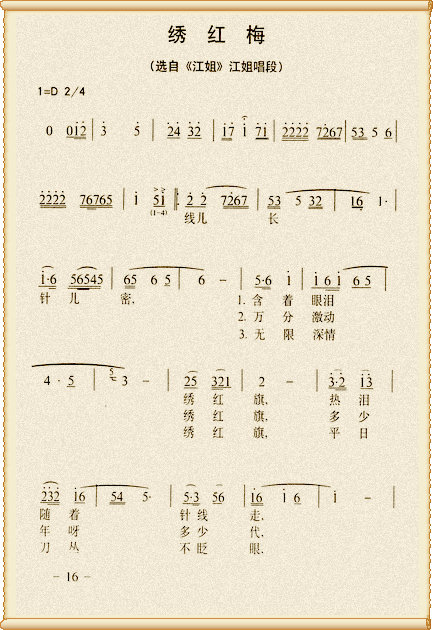 绣 红 梅
(选自《江姐》江姐唱段)
1=D 2/4
0 012 | 3 5 | 24 32 | 17 1 71 | 2222 7267 | 53 5 6 |
2222 76765 | 1 51 |: 2 2 7267 | 53 5 32 | 16 1· |
(1-4)
线儿 长
1·6 56545 | 65 6 5 | 6 - | 5·6 1 | 1 6 1 6 5 |
针 儿 密, 1. 含 着 眼泪
2. 万 分 激动
3. 无 限 深情
4 · 5 | 5 3 - | 25 321 | 2 - | 3·2 13 |
绣 红 旗, 热 泪
绣 红 旗, 多 少
绣 红 旗, 平 日
232 16 | 54 5· | 5·3 56 | 16 1 6 | 1 - |
随 着 针 线 走,
年 呀 多 少 代,
刀 丛 不 眨 眼,
- 16 -